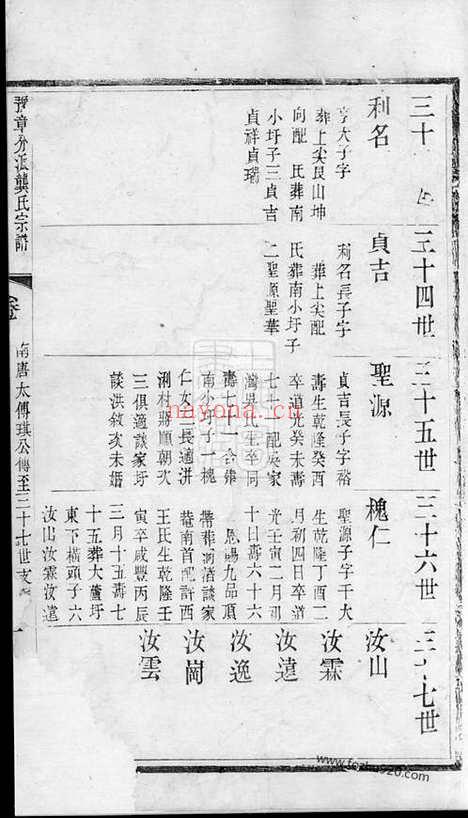 三十
三十四世
三十五世
三十六世
三十七世
利名
子字
葬上尖艮山坤
向配 氏葬南
小圩子三貞吉
貞祥貞瑞
貞吉
利名長子字
葬上尖配
氏葬南小圩子
二聖源聖華
聖源
貞吉長子字裕
壽生乾隆癸酉
卒道光癸未壽
七十一配吳家
灣吳氏生卒同
壽七十一合葬
南小圩子一槐
仁女二長適洴
洌村蔣順朝次
三俱適談家圩
談洪敘亥未婚
槐仁
聖源子字千大
生乾隆丁酉二
月初四日卒道
光壬寅二月初
十日壽六十六
恩賜九品頂
帶葬洞 談家
菴南首配許西
王氏生乾隆壬
寅卒咸豐丙辰
三月十五壽七
十五葬大蘆圩
東下橫頭子六
汝山汝霖汝遠
汝山
汝霖
汝遠
汝逸
汝崗
汝雲
豫章分派龔氏宗譜
南唐太傅琪公傳至三十七世支
nayona.cn
www.fozhu920.com